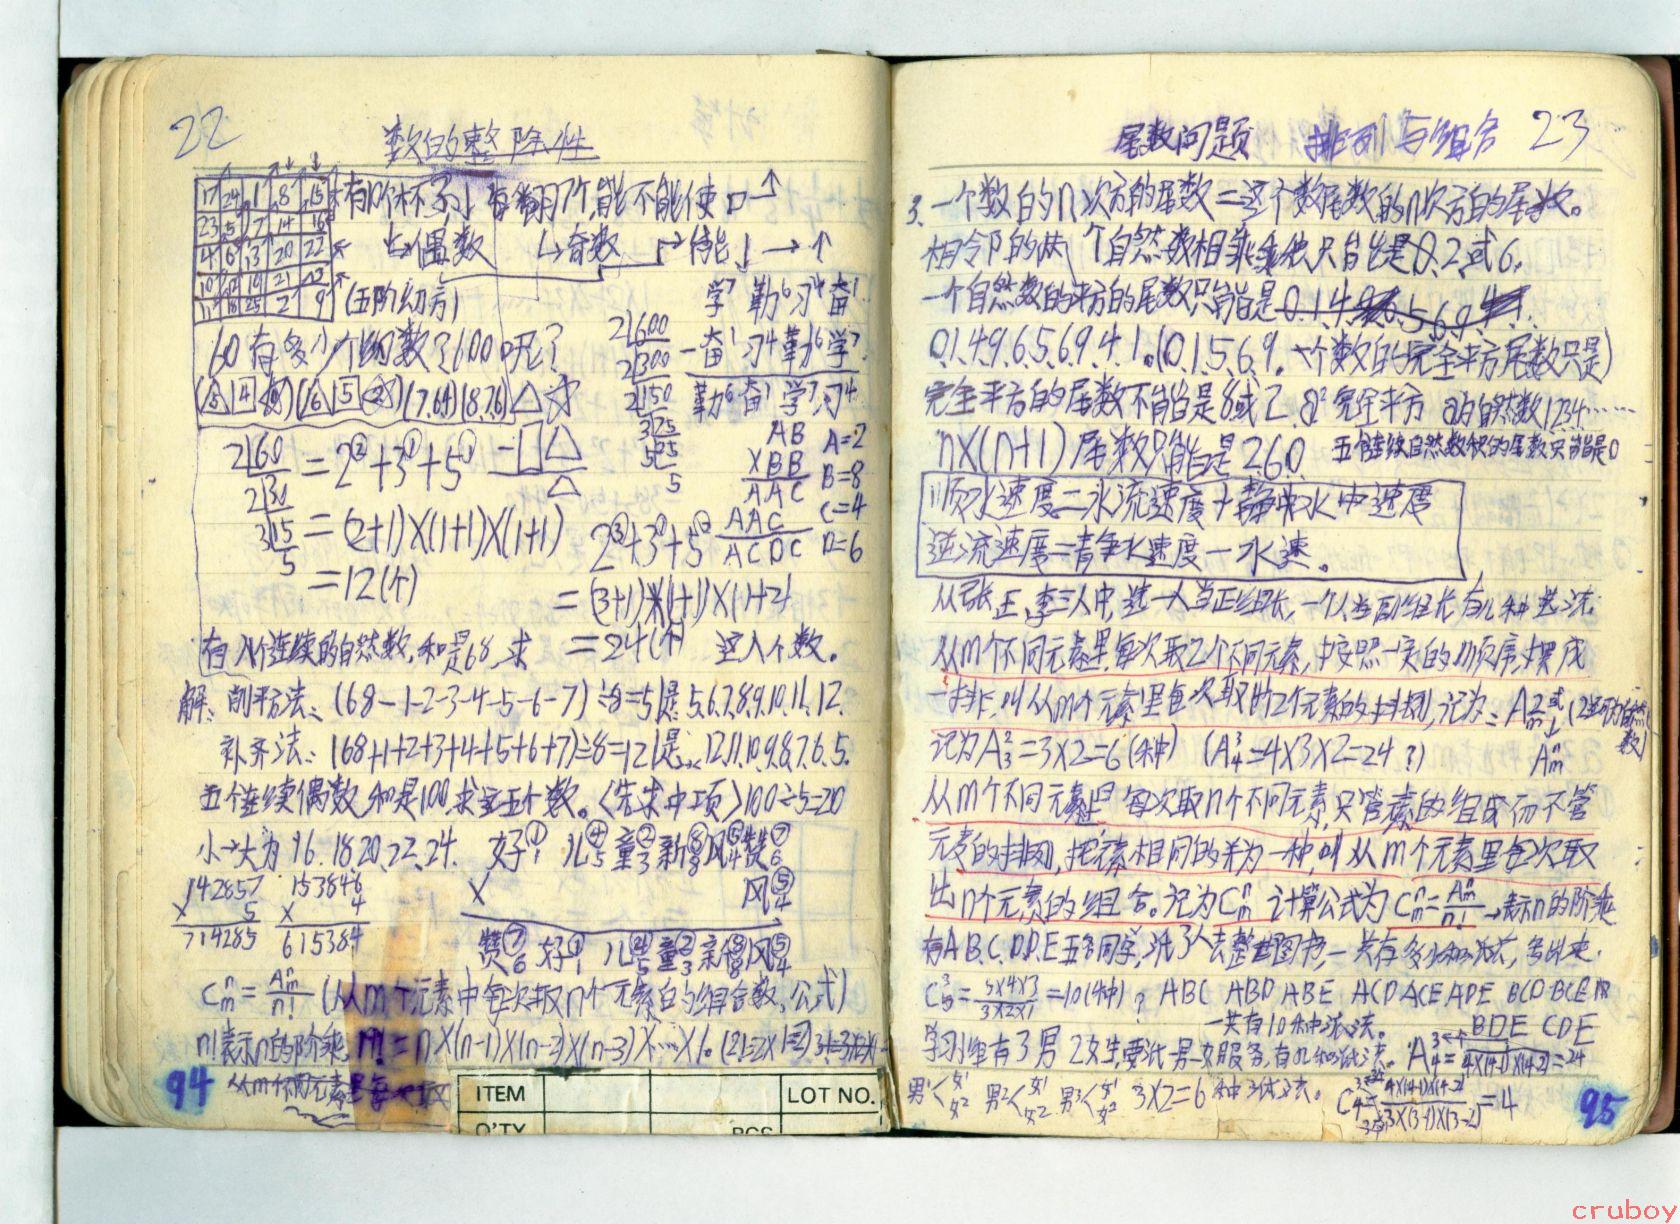 22
数的整除性
17 24 1 8 15
23 5 7 14 16
4 6 13 20 22
10 12 19 21 3
11 18 25 2 9
(五阶幻方)
60有多少个约数?600呢?
2|60
2|30
3|15
5
=(2+1)×(1+1)×(1+1)
=12(个)
2|600
2|300
2|150
=24(个)
学⁷勤⁶习⁴奋¹
-奋¹习⁴勤⁶学⁷
勤⁶奋¹学⁷习⁴
AB
×BB
AAC
AAC
ACDC
A=2
B=8
C=4
D=6
有八个连续的自然数,和是68,求这八个数。
解:削平方法:(68-1-2-3-4-5-6-7)÷8=5 是:5.6.7.8.9.10.11.12.
补齐法:(68+1+2+3+4+5+6+7)÷8=12 是:12.11.10.9.8.7.6.5.
五个连续偶数和是100,求这五个数。(先求中项)100÷5=20
小→大为16.18.20.22.24.
142857
× 5
714285
153846
× 4
615384
好儿童新风赞
× 风
赞好儿童新风
C_m^n=A_m^n/n! (从m个元素中每次取n个元素的组合数,公式)
n!表示n的阶乘 n!=n×(n-1)×(n-2)×(n-3)×……×1。
94
ITEM
LOT NO.
Q'TY
PCS
尾数问题 排列与组合 23
3. 一个数的n次方的尾数=这个数尾数的n次方的尾数。
相邻的两个自然数相乘乘积只能是0.2或6.
一个自然数的平方的尾数只能是
0.1.4.9.6.5.6.9.4.1。(0.1.5.6.9.一个数的完全平方尾数只是)
完全平方的尾数不能是8或2. a²完全平方 a的自然数1234……
n×(n+1)尾数只能是260. 五个连续自然数积的尾数只能是0
顺水速度=水流速度+静水中速度
逆流速度=静水速度-水速。
从张、王、李三人中,选一人当正组长,一个人当副组长,有几种选法:
从m个不同元素里,每次取2个不同元素,按照一定的顺序,摆成
一排,叫从m个元素里每次取的2个元素的排列,记为:
记为A_3^2=3×2=6(种) (A_4^3=4×3×2=24?) A_m^n
从m个不同元素里每次取n个不同元素,只管元素的组成而不管
元素的排列,把元素相同的并为一种,叫从m个元素里每次取
出n个元素的组合。记为C_m^n 计算公式为C_m^n=A_m^n/n! →表示n的阶乘
有A.B.C.D.E五名同学,派3人去整理图书,一共有多少种派法,写出来.
C_5^3=5×4×3/3×2×1=10(种)? ABC ABD ABE ACD ACE ADE BCD BCE
BDE CDE
一共有10种派法。
学习小组有3男2女生,要派一男一女服务,有几种派法。
A_4^3=4×(4-1)×(4-2)=24
男1<女1 女2 男2<女1 女2 男3<女1 女2 3×2=6种
4×(4-1)×(4-2)/3×(3-1)×(3-2)=4
95
cruboy